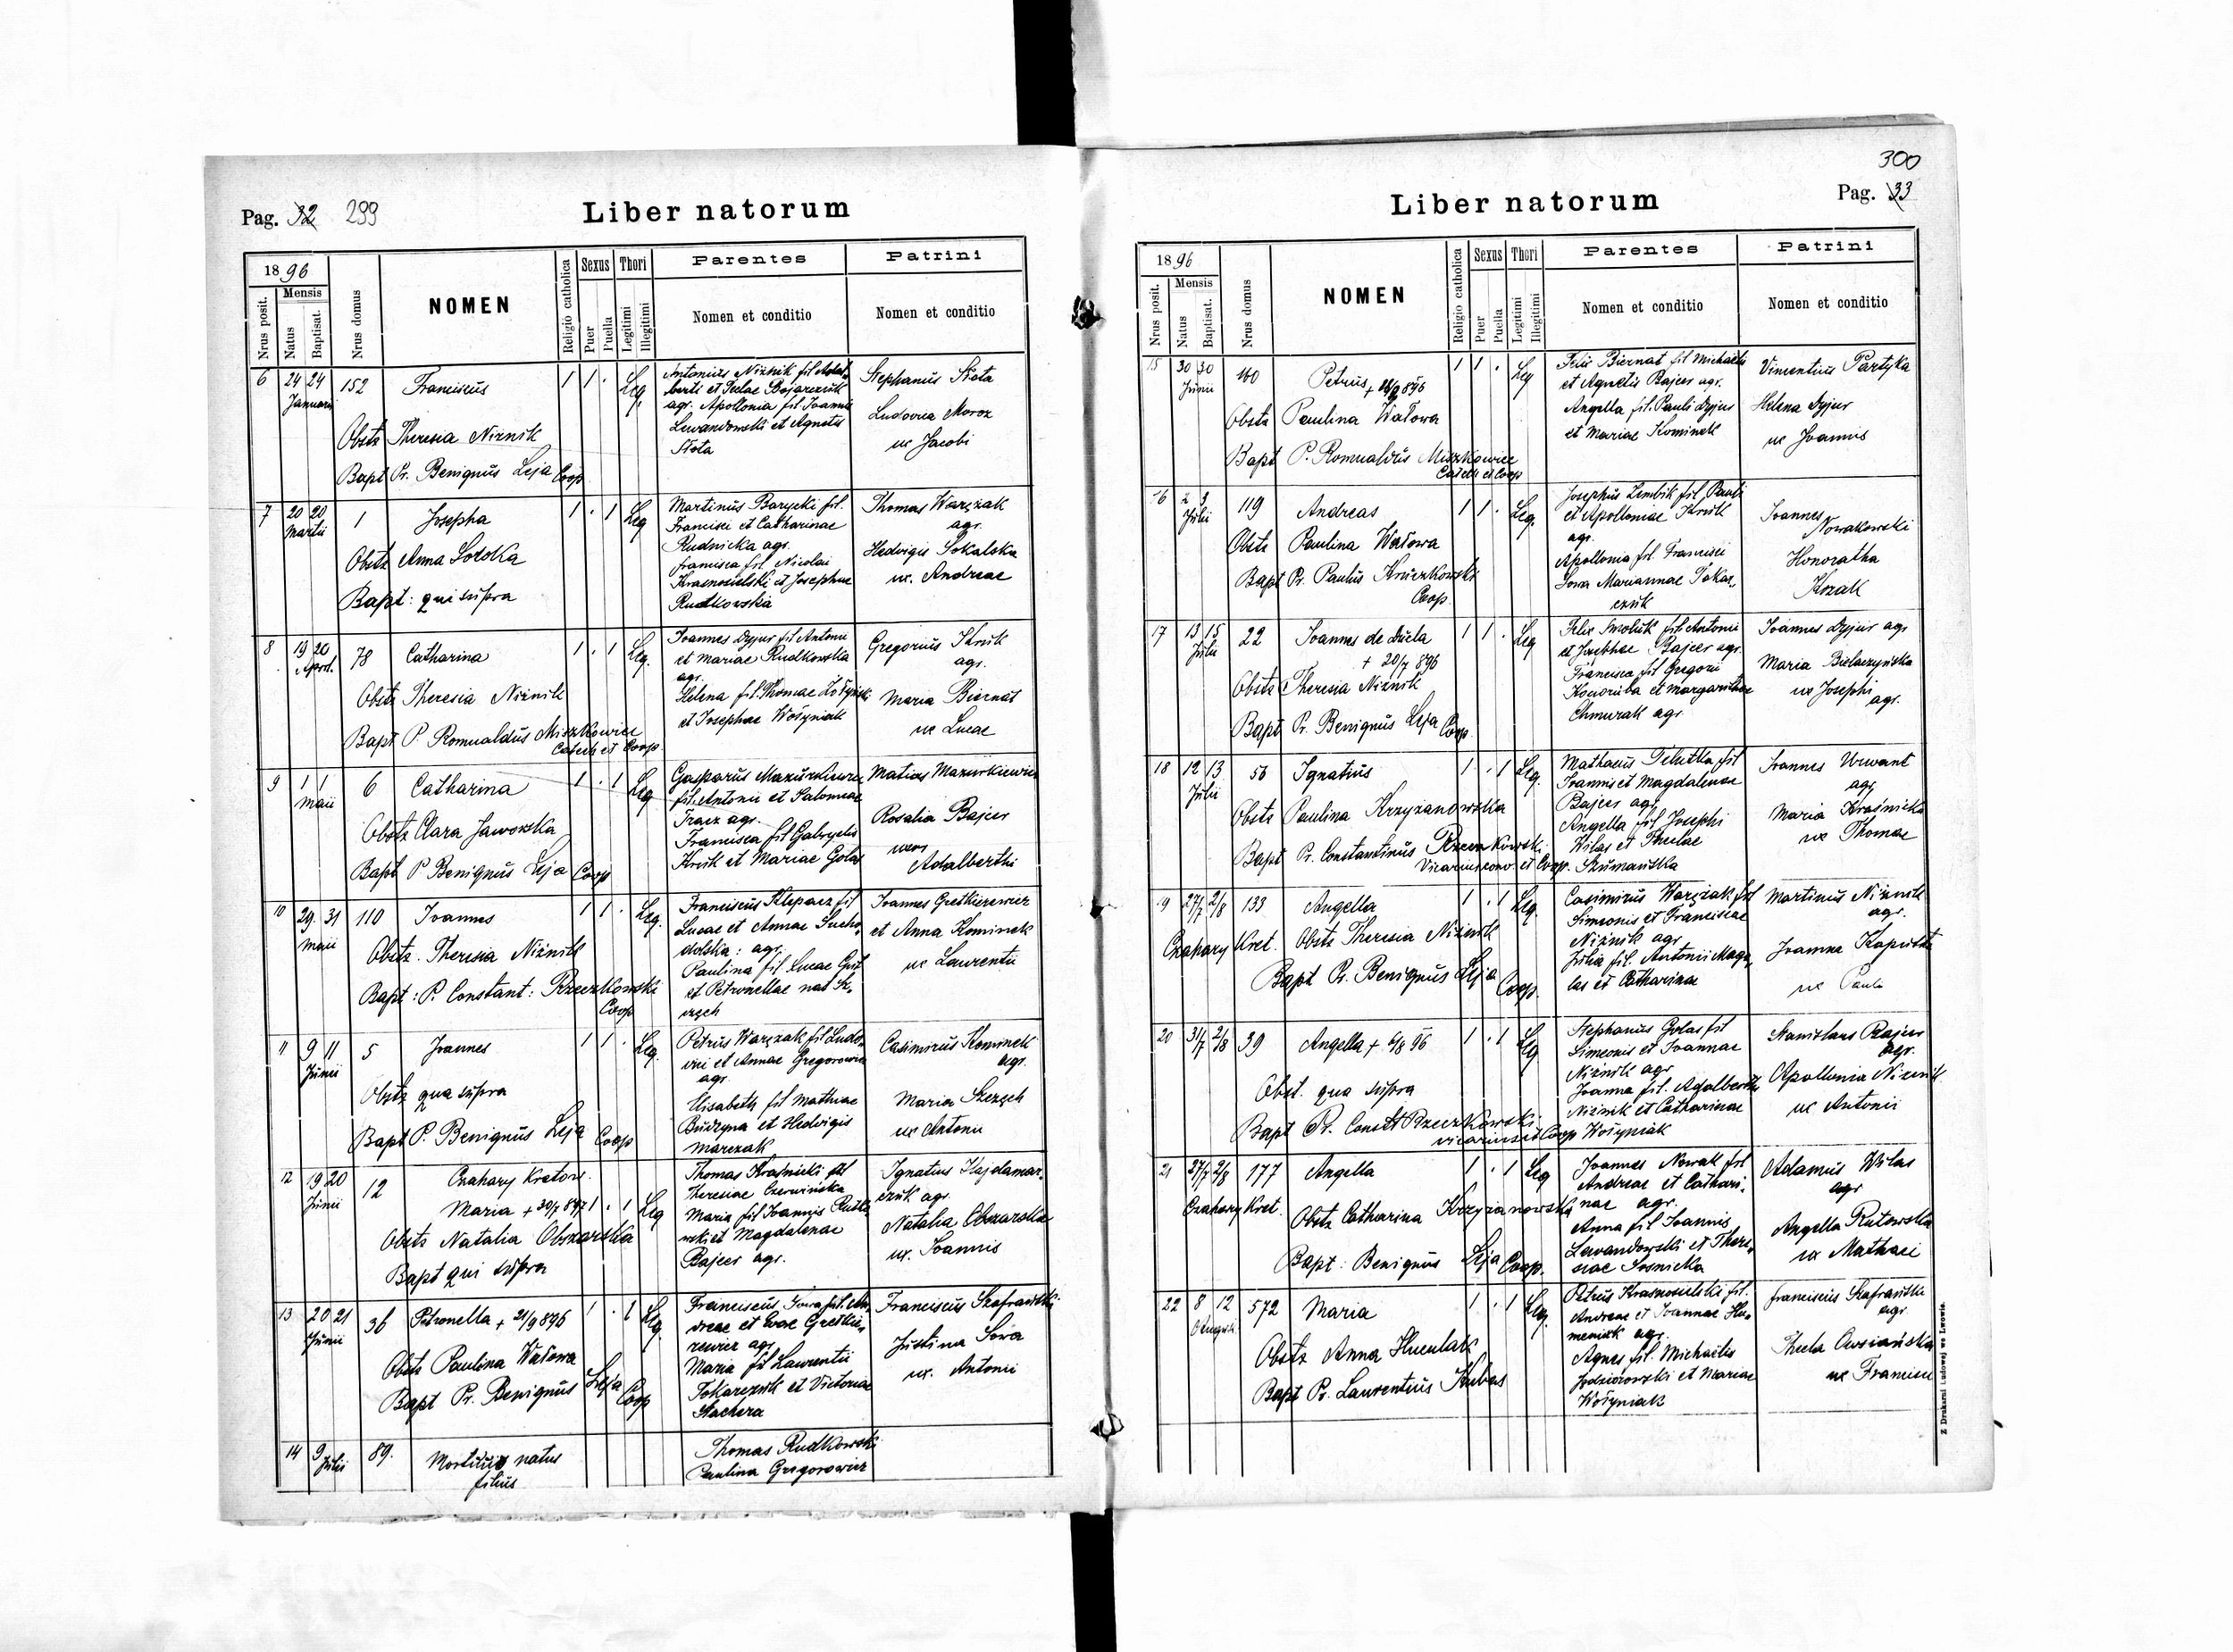 Pag. 32 299
Liber natorum
1896
Mensis
Nrus posit.
Natus
Baptisat.
Nrus domus
NOMEN
Religio catholica
Sexus
Puer
Puella
Thori
Legitimi
Illegitimi
Parentes
Nomen et conditio
Patrini
Nomen et conditio
6 24 24 152 Franciscus 1 1 . Leg.
Januarii
Obstx Theresia Niznik
Bapt Pr. Benignus Leja Coop
Antonius Niznik fil Adal-
berti et Teclae Bojarczuk
agr. Apollonia fil Joannis
Lewandowski et Agnetis
Słota
Stephanus Słota
Ludovica Moroz
ux Jacobi
7 20 20 1 Josepha 1 . 1 Leg
Martii
Obstx Anna Soroka
Bapt: qui supra
Martinus Barycki fil.
Francisci et Catharinae
Rudnicka agr.
Francisca fil Nicolai
Krasnosielski et Josephae
Rudkowska
Thomas Warczak
agr.
Hedvigis Sokalska
ux. Andreae
8 19 20 78 Catharina 1 . 1 Leg.
April.
Obstx Theresia Niznik
Bapt P. Romualdus Miszkowicz
Catech et Coop
Joannes Dyjur fil Antonii
et Mariae Rudkowska
agr.
Helena fil. Thomae
et Josephae Wołyniak
Gregorius Kruk
agr.
Maria Biernat
ux Lucae
9 1 1 6 Catharina 1 . 1 Leg
Maii
Obstx Clara Jaworska
Bapt P Benignus Leja Coop
Gasparus Mazurkiewicz
fil. Antonii et Salomeae
Tracz agr.
Francisca fil Gabryelis
Kruk et Mariae Golas
Matias Mazurkiewicz
Rosalia Bajcer
uxor
Adalberthi
10 29 31 110 Joannes 1 1 . Leg.
Maii
Obstx. Theresia Niznik
Bapt: P. Constant: Rzeczkowski
Coop
Franciscus Klepacz fil
Lucae et Annae Sucho-
dolska: agr.
Paulina fil Lucae
et Petronellae
Joannes Gretkierewicz
et Anna Kominek
ux Laurentii
11 9 11 5 Joannes 1 1 . Leg.
Junii
Obstx qua supra
Bapt P. Benignus Leja Coop
Petrus Warczak fil Ludo-
vici et Annae Gregorowicz
agr.
Elisabeth fil Mathiae
et Hedvigis
Marczak
Casimirus Kominek
agr.
Maria
ux Antonii
12 19 20 12 Czahary Kretow.
Junii
Maria + 30/7 897 1 . 1 Leg
Obstx Natalia Obszarska
Bapt qui supra
Thomas Kraśnicki fil
Theresiae Czerwińska
Maria fil Joannis
et Magdalenae
Bajcer agr.
Ignatius Hajdamar-
czuk agr.
Natalia Obszarska
ux. Joannis
13 20 21 36 Petronella + 21/9 896 1 . 1 Leg.
Junii
Obstx Paulina Wałowa
Bapt Pr. Benignus Leja Coop
Franciscus Sowa fil An-
dreae et Evae Gretkie-
rewicz agr
Maria fil Laurentii
Tokarczuk et Victoriae
Stachera
Franciscus Szafrański
Justina Sowa
ux. Antonii
14 9 89. Mortuus natus
Julii
filius
Thomas Rudkowski
Paulina Gregorowicz
300
Pag. 33
Liber natorum
1896
Mensis
Nrus posit.
Natus
Baptisat.
Nrus domus
NOMEN
Religio catholica
Sexus
Puer
Puella
Thori
Legitimi
Illegitimi
Parentes
Nomen et conditio
Patrini
Nomen et conditio
15 30 30 160 Petrus 1 1 . Leg
Junii
Obstx Paulina Wałowa
Bapt P. Romualdus Miszkowicz
Catech et Coop
Felix Biernat fil Michaelis
et Agnetis Bajcer agr.
Angella fil. Pauli Dyjur
et Mariae Kominek
Vincentius Partyka
Helena Dyjur
ux Joannis
16 2 3 119 Andreas 1 1 . Leg.
Julii
Obstx Paulina Wałowa
Bapt Pr. Paulus Kruczkowski
Coop.
Josephus Zembik fil Pauli
et Apolloniae Kruk
agr.
Apollonia fil. Francisci
Sowa Mariannae Tokar-
czuk
Joannes
Nowakowski
Honoratha
Kozak
17 13 15 22 Joannes de Dukla 1 1 . Leg
Julii
+ 20/7 896
Obstx Theresia Niznik
Bapt Pr. Benignus Leja Coop
Felix Smoluk fil. Antonii
et Josephae Bajcer agr.
Francisca fil Gregorii
et Margarithae
Chmurak agr.
Joannes Dyjur agr
Maria Bielaczyńska
ux Josephi
agr.
18 12 13 56 Ignatius 1 . 1 Leg.
Julii
Obstx Paulina Krzyżanowska
Bapt Pr. Constantinus Rzeczkowski
Vicarius conv. et Coop.
Mathaeus Telutka fil
Joannis et Magdalenae
Bajcer agr.
Angella fil Josephi
Wilas et Theclae
Szumańska
Joannes Urwant
agr.
Maria Kraśnicka
ux Thomae
19 27/7 2/8 133 Angella 1 . 1 Leg.
Czahary Kret. Obstx Theresia Niznik
Bapt Pr. Benignus Leja Coop.
Casimirus Warczak fil
Simeonis et Franciscae
Niznik agr
Julia fil. Antonii Maga-
las et Catharinae
Martinus Niznik
agr.
Joanna Kapusta
ux Pauli
20 31/7 2/8 39 Angella + 6/8 96 1 . 1 Leg
Obst. qua supra
Bapt Pr. Const Rzeczkowski
vicarius et Coop
Stephanus Golas fil
Simeonis et Joannae
Niznik agr
Joanna fil. Adalberti
Niznik et Catharinae
Wołyniak
Stanislaus Bajcer
agr.
Apollonia Niznik
ux Antonii
21 27/7 2/8 177 Angella 1 . 1 Leg
Czahary Kret.
Obstx Catharina Krzyżanowska
Bapt: Benignus Leja Coop.
Joannes Nowak fil
Andreae et Cathari-
nae agr.
Anna fil Joannis
Lewandowski et There-
siae Sosnicka
Adamus Wilas
agr
Angella Rutowska
ux Mathaei
22 8 12 572 Maria 1 . 1 Leg.
Obstx Anna Huculak
Bapt Pr. Laurentius Kubas
Petrus Krasnosielski fil.
Andreae et Joannae Hu-
meniuk agr.
Agnes fil. Michaelis
et Mariae
Wołyniak
Franciscus Szafrański
agr.
Thecla Owsiańska
ux Francisci
Z Drukarni Ludowej we Lwowie.